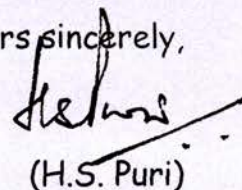 rs sincerely,
(H.S. Puri)